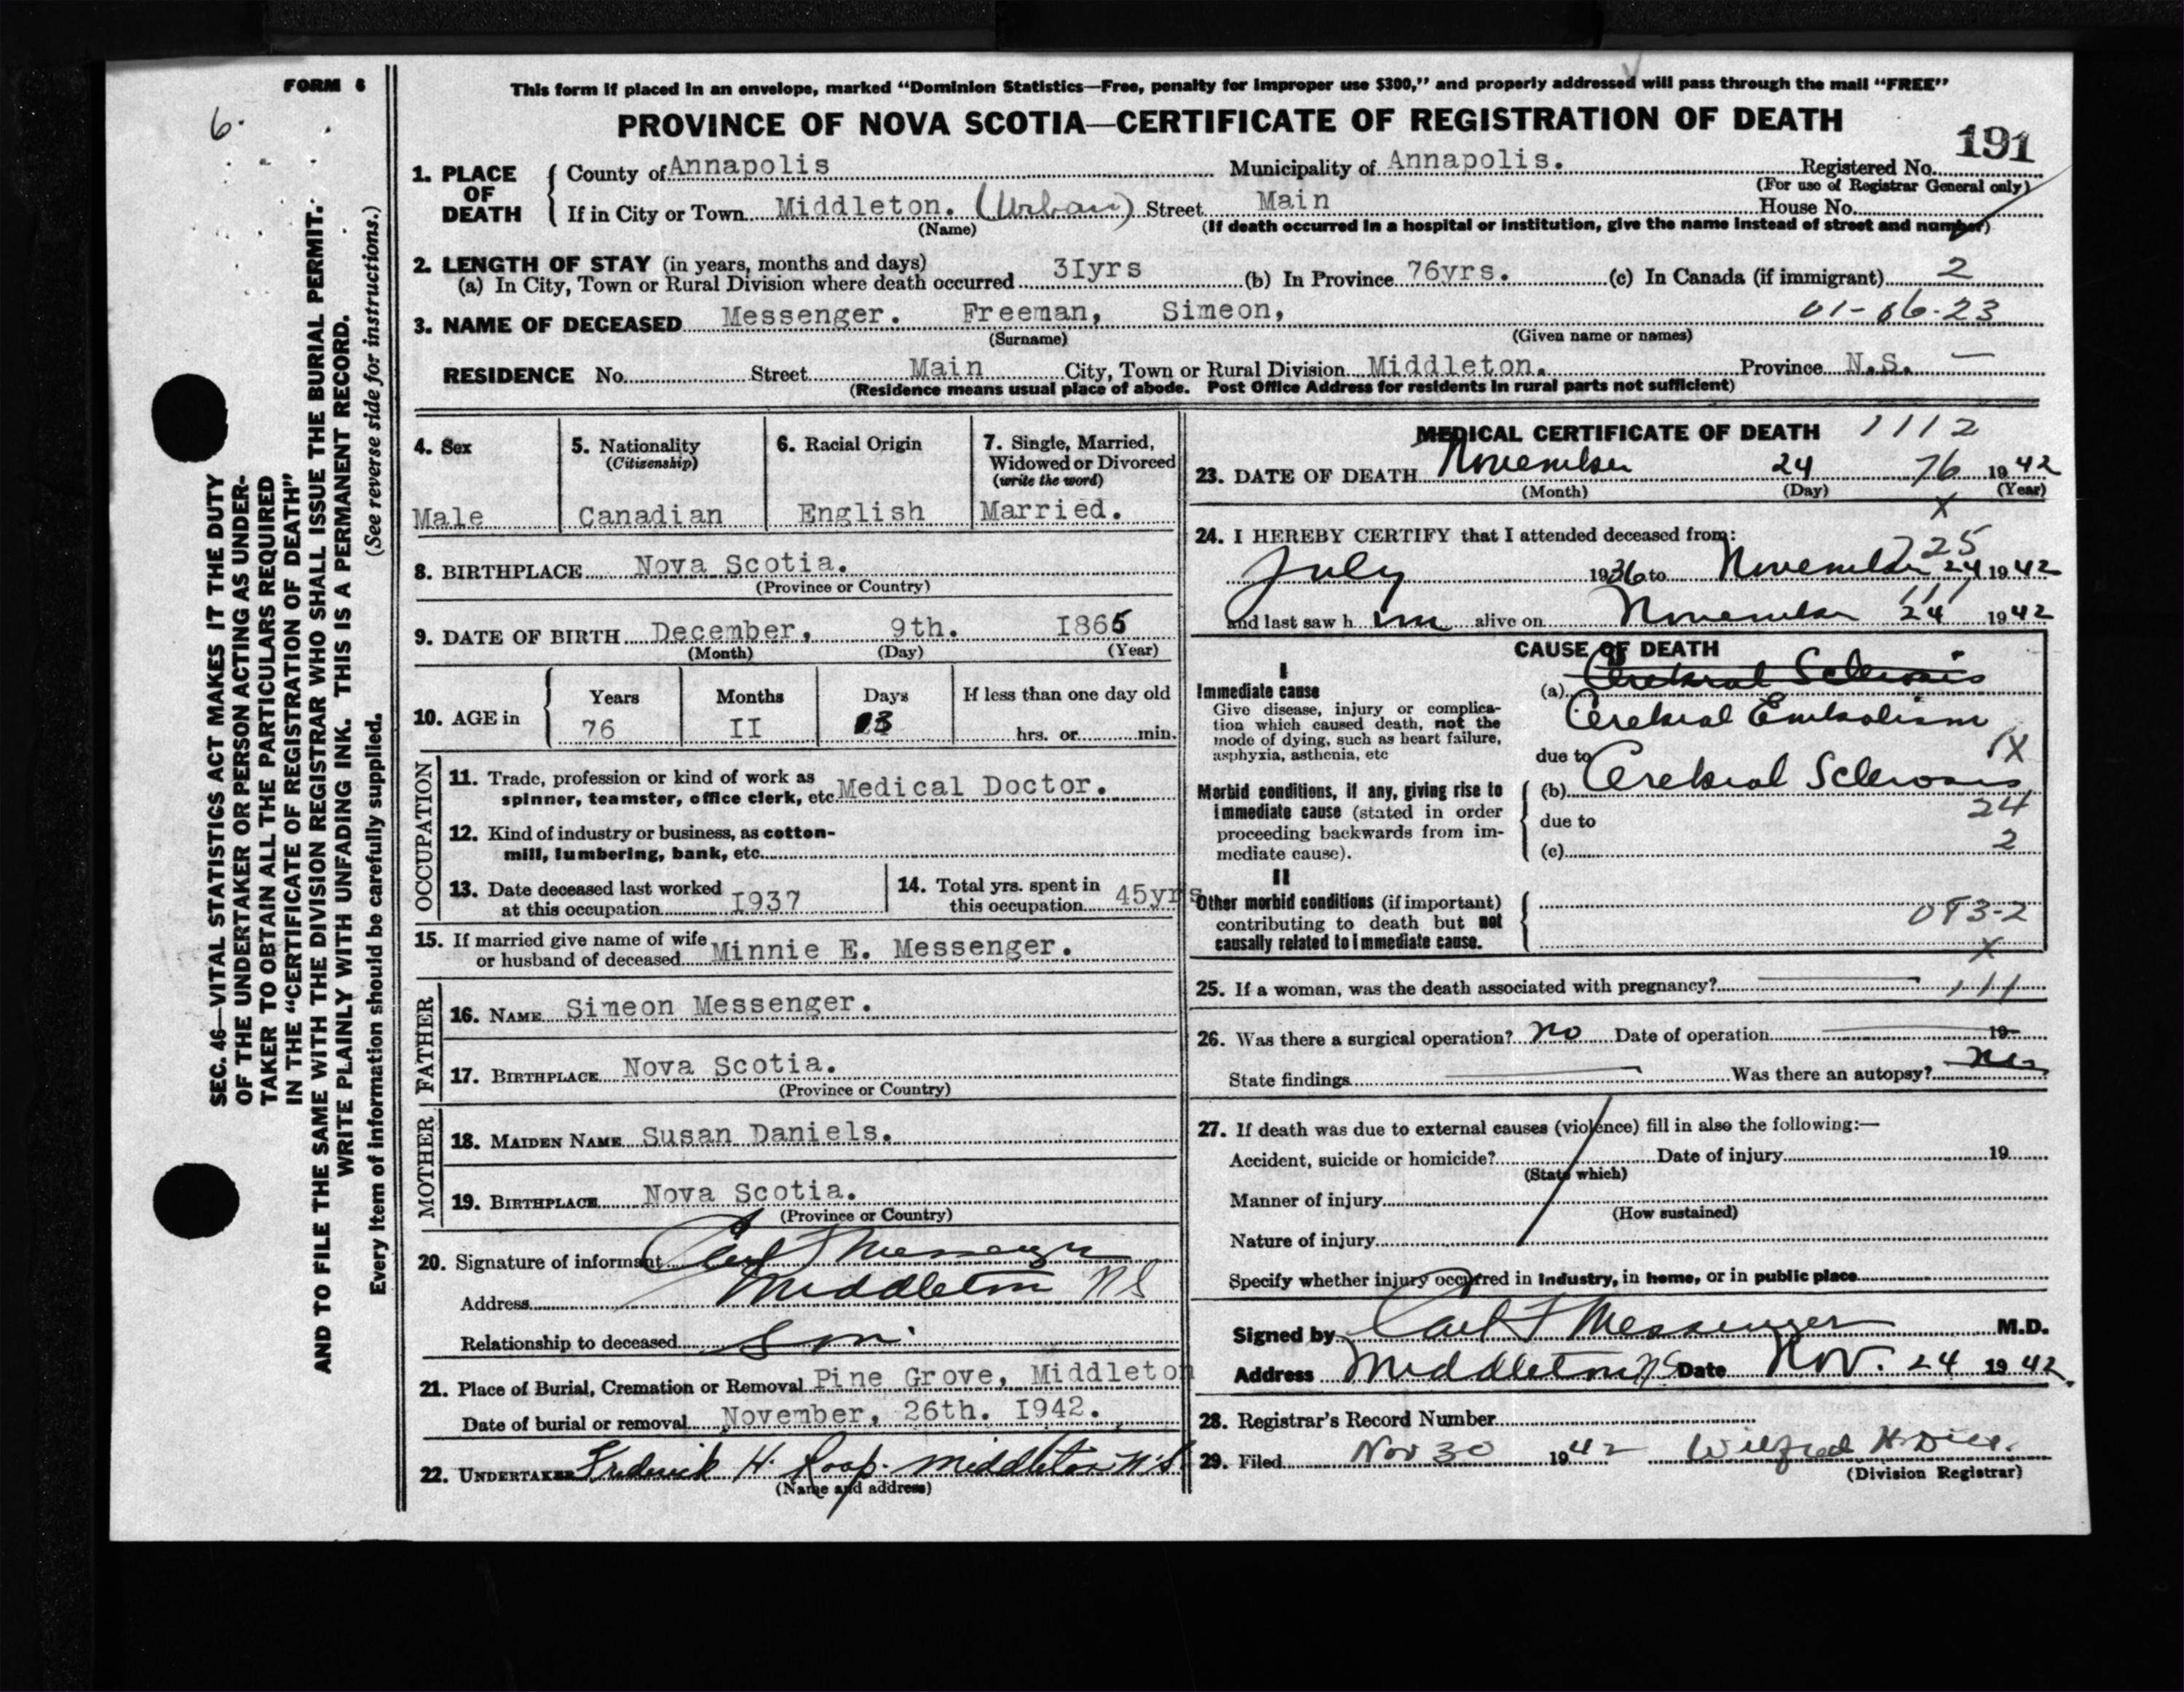 FORM 6
6.
This form if placed in an envelope, marked "Dominion Statistics—Free, penalty for improper use $300," and properly addressed will pass through the mail "FREE"
PROVINCE OF NOVA SCOTIA—CERTIFICATE OF REGISTRATION OF DEATH
191
1. PLACE OF DEATH
County of Annapolis Municipality of Annapolis. Registered No.
(For use of Registrar General only)
If in City or Town Middleton. (Urban) Street Main House No.
(Name) (If death occurred in a hospital or institution, give the name instead of street and number)
2. LENGTH OF STAY (in years, months and days)
(a) In City, Town or Rural Division where death occurred 3Iyrs (b) In Province 76yrs. (c) In Canada (if immigrant) 2
01-06-23
3. NAME OF DECEASED Messenger. Freeman, Simeon,
(Surname) (Given name or names)
RESIDENCE No. Street Main City, Town or Rural Division Middleton. Province N.S. —
(Residence means usual place of abode. Post Office Address for residents in rural parts not sufficient)
SEC. 46—VITAL STATISTICS ACT MAKES IT THE DUTY
OF THE UNDERTAKER OR PERSON ACTING AS UNDER-
TAKER TO OBTAIN ALL THE PARTICULARS REQUIRED
IN THE "CERTIFICATE OF REGISTRATION OF DEATH"
AND TO FILE THE SAME WITH THE DIVISION REGISTRAR WHO SHALL ISSUE THE BURIAL PERMIT.
WRITE PLAINLY WITH UNFADING INK. THIS IS A PERMANENT RECORD.
Every item of information should be carefully supplied. (See reverse side for instructions.)
4. Sex
Male
5. Nationality
(Citizenship)
Canadian
6. Racial Origin
English
7. Single, Married,
Widowed or Divorced
(write the word)
Married.
8. BIRTHPLACE Nova Scotia.
(Province or Country)
9. DATE OF BIRTH December, 9th. I865
(Month) (Day) (Year)
10. AGE in
Years Months Days If less than one day old
76 II 13 hrs. or min.
OCCUPATION
11. Trade, profession or kind of work as
spinner, teamster, office clerk, etc. Medical Doctor.
12. Kind of industry or business, as cotton-
mill, lumbering, bank, etc.
13. Date deceased last worked
at this occupation I937
14. Total yrs. spent in
this occupation 45yrs
15. If married give name of wife
or husband of deceased Minnie E. Messenger.
FATHER
16. NAME Simeon Messenger.
17. BIRTHPLACE Nova Scotia.
(Province or Country)
MOTHER
18. MAIDEN NAME Susan Daniels.
19. BIRTHPLACE Nova Scotia.
(Province or Country)
20. Signature of informant Carl F Messenger
Address Middleton NS
Relationship to deceased Son.
21. Place of Burial, Cremation or Removal Pine Grove, Middleton
Date of burial or removal November, 26th. I942.
22. UNDERTAKER Frederick H. Roop. Middleton N.S.
(Name and address)
MEDICAL CERTIFICATE OF DEATH 1112
23. DATE OF DEATH November 24 76 1942
(Month) (Day) (Year)
X
24. I HEREBY CERTIFY that I attended deceased from:
225
July 1936 to November 24 1942
111
and last saw h im alive on November 24 1942
CAUSE OF DEATH
I
Immediate cause
Give disease, injury or complica-
tion which caused death, not the
mode of dying, such as heart failure,
asphyxia, asthenia, etc
(a) Cerebral Sclerosis
Cerebral Embolism
1X
due to
Morbid conditions, if any, giving rise to
immediate cause (stated in order
proceeding backwards from im-
mediate cause).
(b) Cerebral Sclerosis
24
due to
2
(c)
II
Other morbid conditions (if important)
contributing to death but not
causally related to immediate cause.
083-2
X
25. If a woman, was the death associated with pregnancy? 111
26. Was there a surgical operation? no Date of operation 19
State findings Was there an autopsy? no
27. If death was due to external causes (violence) fill in also the following:—
Accident, suicide or homicide? Date of injury 19
(State which)
Manner of injury
(How sustained)
Nature of injury
Specify whether injury occurred in industry, in home, or in public place
Signed by Carl F Messenger M.D.
Address Middleton NS Date Nov. 24 1942.
28. Registrar's Record Number
29. Filed Nov 30 1942 Wilfred H. Dill.
(Division Registrar)